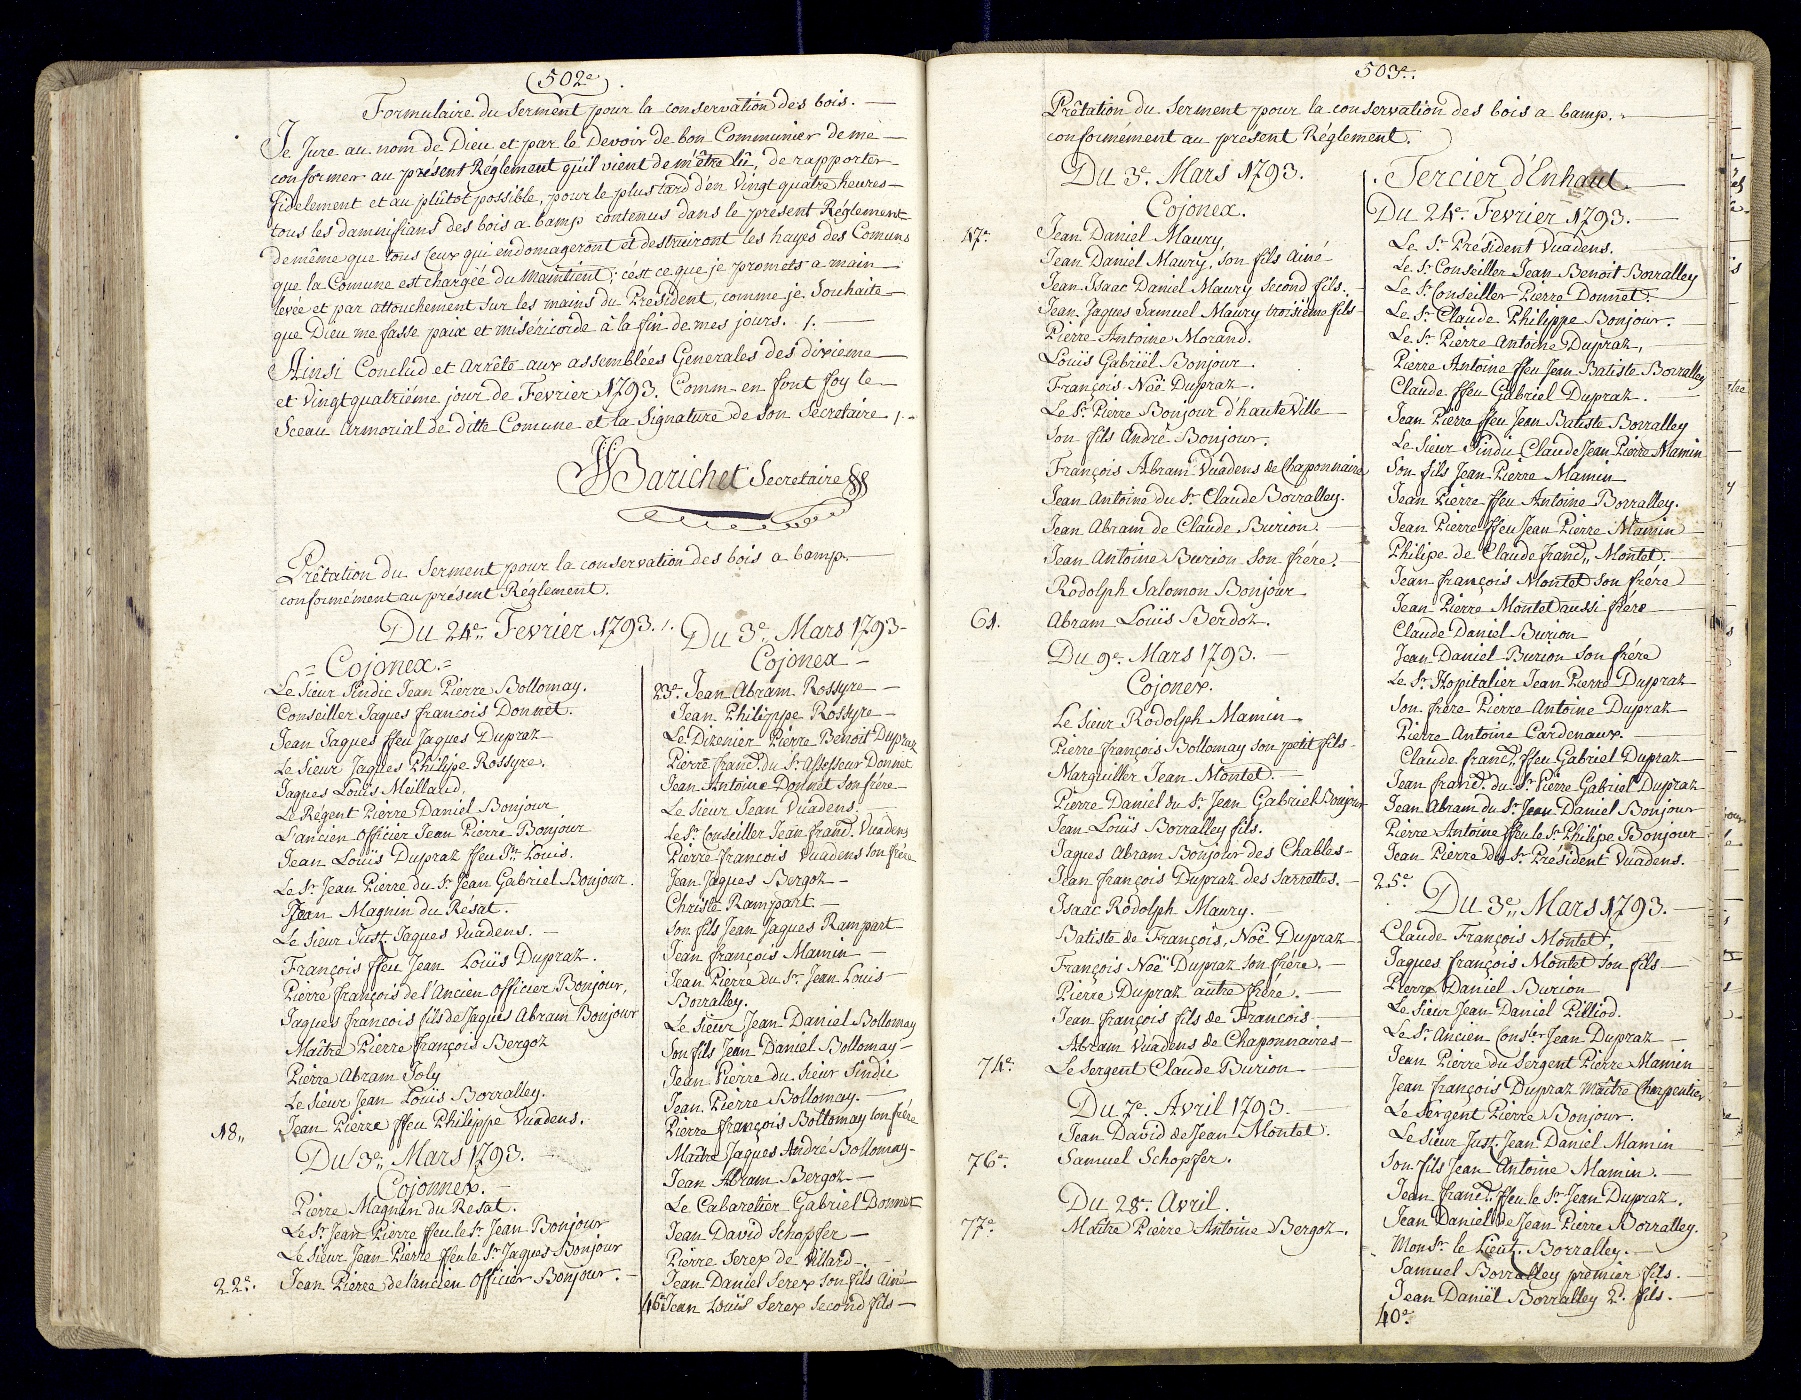 (502e)
Formulaire du Serment pour la conservation des bois. —
Je Jure au nom de Dieu et par le Devoir de bon Communier de me —
conformer au présent Réglement qu'il vient de m'être lû, de rapporter —
fidelement et au plûtot possible, pour le plus tard d'en Vingt quatre heures —
tous les damnifians des bois a bamp contenus dans le présent Réglement
de même que tous ceux qui endomageront et destruiront les hayes des Comuns
que la Comune est chargée du Maintient; c'ést ce que je promets a main —
levée et par attouchement sur les mains du Président, comme je Souhaite —
que Dieu me fasse paix et miséricorde à la fin de mes jours. /. —
Ainsi Conclud et arrêté aux assemblées Generales des dixieme —
et Vingtquatriéme jour de Fevrier 1793. Comm- en font foy le —
Sceau armorial de ditte Comune et la Signature de son Secretaire /. -
Barichet Secretaire
Prêtation du Serment pour la conservation des bois a bamp. —
conformément au présent Réglement.
Du 24e. Fevrier 1793. /.
= Cojonex. =
Le Sieur Sindic Jean Pierre Bollomay.
Conseiller Jaques francois Donnet.
Jean Jaques ffeu Jaques Dupraz
Le Sieur Jaques Philipe Rossyre.
Jaques Louis Meillaud.
Le Régent Pierre Daniel Bonjour
L'ancien Officier Jean Pierre Bonjour
Jean Louïs Dupraz ffeu Sr. Louis.
Le Sr. Jean Pierre du Sr. Jean Gabriel Bonjour.
Jean Magnin du Résat.
Le Sieur Just. Jaques Vuadens. —
François ffeu Jean Louïs Dupraz.
Pierre françois de l'Ancien Officier Bonjour,
Jaques françois fils de Jaques Abram Bonjour
Maître Pierre François Bergoz
Pierre Abram Joly
Le Sieur Jean Louïs Borralley.
18,, Jean Pierre ffeu Philippe Vuadens.
Du 3e. Mars 1793. —
Cojonnex. —
Pierre Magnin du Resat.
Le Sr. Jean Pierre ffeu le Sr. Jean Bonjour
Le Sieur Jean Pierre ffeu le Sr. Jaques Bonjour
22e. Jean Pierre de l'ancien Officier Bonjour. —
Du 3e. Mars 1793 —
Cojonex —
23e. Jean Abram Rossyre —
Jean Philippe Rossyre —
Le Dizenier Pierre Benoit Dupraz
Pierre franc̃. du Sr. Assesseur Donnet
Jean Antoine Donnet son frére —
Le Sieur Jean Vuadens. —
Le Sr. Conseiller Jean franc̃. Vuadens
Pierre françois Vuadens son frére
Jean Jaques Bergoz —
Christe Rampart —
Son fils Jean Jaques Rampart
Jean françois Mamin —
Jean Pierre du Sr. Jean Louis —
Borralley.
Le Sieur Jean Daniel Bollomay
Son fils Jean Daniel Bollomay —
Jean Pierre du Sieur Sindic
Jean Pierre Bollomay. —
Pierre françois Bollomay son frére
Maître Jaques André Bollomay-
Jean Abram Bergoz —
Le Cabaretier Gabriel Donnet
Jean David Schopfer —
Pierre Serex de Villard —
Jean Daniel Serex son fils Ainé
46e Jean Louïs Serex Second fils —
503e.
Prêtation du Serment pour la conservation des bois a bamp. —
conformément au présent Réglement.
Du 3e. Mars 1793.
Cojonex.
47e. Jean Daniel Maury
Jean Daniel Maury, son fils Ainé
Jean Isaac Daniel Maury second fils. -
Jean Jaques Samuel Maury troisiéme fils
Pierre Antoine Morand.
Louïs Gabriël Bonjour
François Noë Dupraz.
Le Sr. Pierre Bonjour d'hauteVille —
Son fils André Bonjour.
François Abram Vuadens de Chaponnaire
Jean Antoine du Sr. Claude Borralley.
Jean Abram de Claude Burion. —
Jean Antoine Burion Son frére. —
Rodolph Salomon Bonjour
61. Abram Louïs Berdoz.
Du 9e. Mars 1793. —
Cojonex.
Le Sieur Rodolph Mamin —
Pierre françois Bollomay son petit fils-
Marguiller Jean Montet. —
Pierre Daniel du Sr. Jean Gabriel Bonjour
Jean Louïs Borralley fils.
Jaques Abram Bonjour des Chables —
Jean françois Dupraz des Sarrettes. —
Isaac Rodolph Maury.
Batiste de François, Noë Dupraz
François Noë Dupraz Son frére. —
Pierre Dupraz autre frére. —
Jean françois fils de François —
Abram Vuadens de Chaponnaires —
74e. Le Sergent Claude Burion —
Du 7e. Avril 1793. —
Jean David de Jean Montet.
76e. Samuel Schopfer.
Du 28e. Avril.
77e. Maître Pierre Antoine Bergoz.
Tercier d'Enhaut. —
Du 24e. Fevrier 1793. —
Le Sr. Président Vuadens.
Le Sr. Conseiller Jean Benoit Borralley
Le Sr. Conseiller Pierre Donnet. —
Le Sr. Claude Philippe Bonjour. —
Le Sr. Pierre Antoine Dupraz,
Pierre Antoine ffeu Jean Batiste Borralley
Claude ffeu Gabriel Dupraz. —
Jean Pierre ffeu Jean Batiste Borralley
Le Sieur Sindic Claude Jean Pierre Mamin
Son fils Jean Pierre Mamin
Jean Pierre ffeu Antoine Borralley.
Jean Pierre ffeu Jean Pierre Mamin —
Philipe de Claude franc̃,, Montet. —
Jean françois Montet son frére
Jean Pierre Montet aussi frére
Claude Daniel Burion
Jean Daniel Burion Son frére
Le Sr. Hopitalier Jean Pierre Dupraz
Son frére Pierre Antoine Dupraz
Pierre Antoine Cardenaux. —
Claude franc̃,, ffeu Gabriel Dupraz —
Jean franc̃. du Sr. Pierre Gabriel Dupraz
Jean Abram du Sr. Jean Daniel Bonjour
Pierre Antoine ffeu le Sr. Philipe Bonjour
25e. Jean Pierre du Sr. Président Vuadens. —
Du 3e. Mars 1793. —
Claude François Montet, —
Jaques françois Montet Son fils —
Pierre Daniel Burion
Le Sieur Jean Daniel Pilliod.
Le Sr. Ancien Conser. Jean Dupraz —
Jean Pierre du Sergent Pierre Mamin
Jean françois Dupraz Maître Charpentier
Le Sergent Pierre Bonjour.
Le Sieur Just. Jean Daniel Mamin
Son fils Jean Antoine Mamin. —
Jean franc̃. ffeu le Sr. Jean Dupraz.
Jean Daniel de Jean Pierre Borralley.
Monsr. le Lieut. Borralley. —
Samuel Borralley premier fils. —
Jean Daniël Borralley 2d. fils. —
40e.